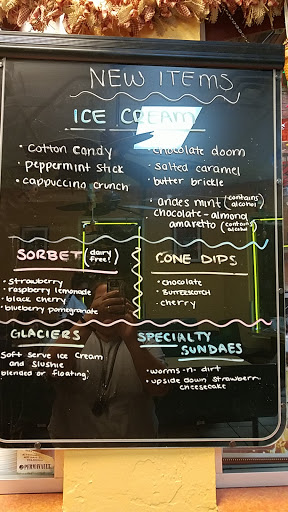 NEW ITEMS
ICE CREAM
• cotton candy
• peppermint stick
• cappuccino crunch
• chocolate doom
• salted caramel
• butter brickle
• andes mint (contains alcohol)
• chocolate-almond amaretto (contains alcohol)
SORBET (dairy free!)
• strawberry
• raspberry lemonade
• black cherry
• blueberry pomegranate
CONE DIPS
• chocolate
• BUTTERSCOTCH
• cherry
GLACIERS
Soft serve Ice Cream
and Slushie
blended or floating!
SPECIALTY
SUNDAES
• worms-n-dirt
• upside down strawberry
cheesecake